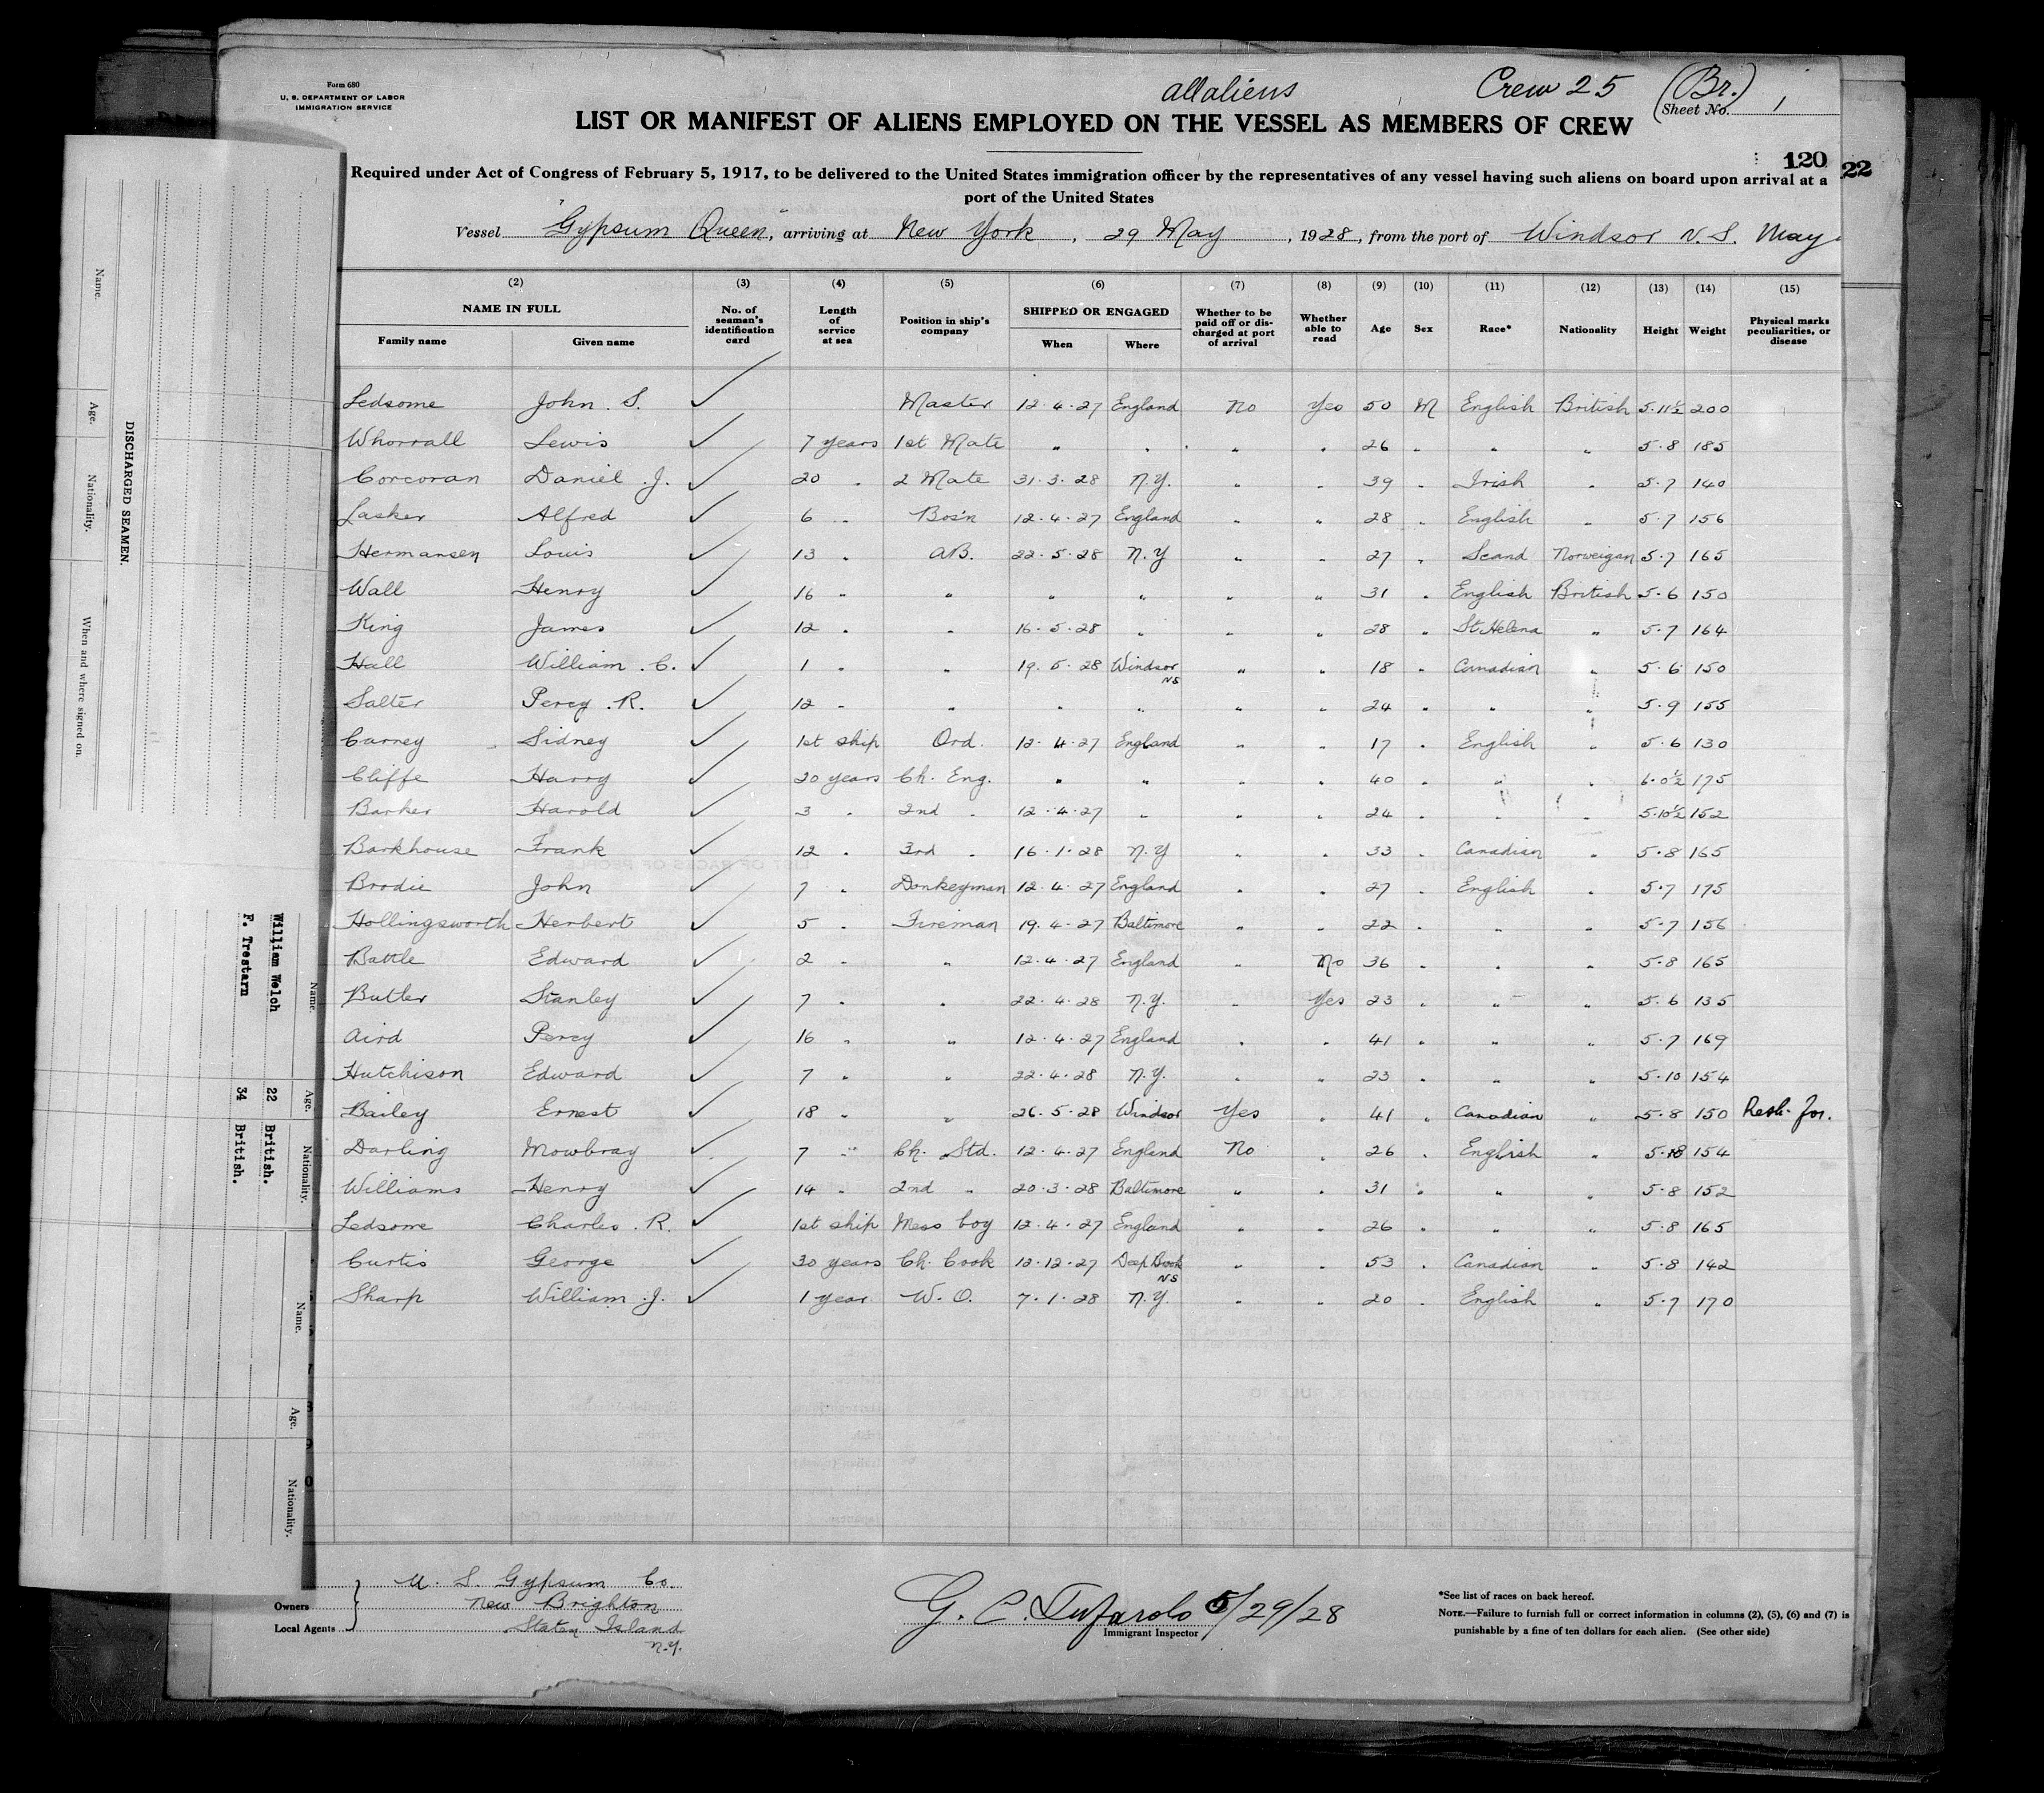 Form 680
U. S. DEPARTMENT OF LABOR
IMMIGRATION SERVICE
all aliens Crew 25 (Br.)
Sheet No. 1
LIST OR MANIFEST OF ALIENS EMPLOYED ON THE VESSEL AS MEMBERS OF CREW
120
22
Required under Act of Congress of February 5, 1917, to be delivered to the United States immigration officer by the representatives of any vessel having such aliens on board upon arrival at a
port of the United States
Vessel "Gypsum Queen", arriving at New York, 29 May, 1928, from the port of Windsor N.S. May
(2) (3) (4) (5) (6) (7) (8) (9) (10) (11) (12) (13) (14) (15)
NAME IN FULL No. of seaman's identification card Length of service at sea Position in ship's company SHIPPED OR ENGAGED Whether to be paid off or discharged at port of arrival Whether able to read Age Sex Race* Nationality Height Weight Physical marks peculiarities, or disease
Family name Given name When Where
Ledsome John . S. ✓ Master 12.4.27 England No Yes 50 M English British 5.11½ 200
Whorrall Lewis ✓ 7 years 1st Mate " " " " 26 " " " 5.8 185
Corcoran Daniel .J. ✓ 20 " 2 Mate 31.3.28 N.Y. " " 39 " Irish " 5.7 140
Lasker Alfred ✓ 6 " Bos'n 12.4.27 England " " 28 " English " 5.7 156
Hermansen Louis ✓ 13 " AB. 22.5.28 N.Y " " 27 " Scand Norweigan 5.7 165
Wall Henry ✓ 16 " " " " " " 31 " English British 5.6 150
King James ✓ 12 " " 16.5.28 " " " 28 " St Helena " 5.7 164
Hall William . C. ✓ 1 " " 19.5.28 Windsor NS " " 18 " Canadian " 5.6 150
Salter Percy .R. ✓ 12 " " " " " " 24 " " " 5.9 155
Carney Sidney ✓ 1st ship Ord. 12.4.27 England " " 17 " English " 5.6 130
Cliffe Harry ✓ 20 years Ch. Eng. " " " " 40 " " " 6.0½ 175
Barker Harold ✓ 3 " 2nd " 12.4.27 " " " 24 " " " 5.10½ 152
Barkhouse Frank ✓ 12 " 3rd " 16.1.28 N.Y " " 33 " Canadian " 5.8 165
Brodie John ✓ 7 " Donkeyman 12.4.27 England " " 27 " English " 5.7 175
Hollingsworth Herbert ✓ 5 " Fireman 19.4.27 Baltimore " " 22 " " " 5.7 156
Battle Edward ✓ 2 " " 12.4.27 England " No 36 " " " 5.8 165
Butler Stanley ✓ 7 " " 22.4.28 N.Y. " Yes 23 " " " 5.6 135
Aird Percy ✓ 16 " " 12.4.27 England " " 41 " " " 5.7 169
Hutchison Edward ✓ 7 " " 22.4.28 N.Y. " " 23 " " " 5.10 154
Bailey Ernest ✓ 18 " " 26.5.28 Windsor Yes " 41 " Canadian " 5.8 150
Darling Mowbray ✓ 7 " Ch. Std. 12.4.27 England No " 26 " English " 5.8 154
Williams Henry ✓ 14 " 2nd " 20.3.28 Baltimore " " 31 " " " 5.8 152
Ledsome Charles .R. ✓ 1st ship Mess boy 12.4.27 England " " 26 " " " 5.8 165
Curtis George ✓ 30 years Ch. Cook 12.12.27 Deep Brook NS " " 53 " Canadian " 5.8 142
Sharp William .J. ✓ 1 year W. O. 7.1.28 N.Y. " " 20 " English " 5.7 170
Owners
Local Agents
U. S. Gypsum Co.
New Brighton
Staten Island
N.Y.
5/29/28
Immigrant Inspector
*See list of races on back hereof.
NOTE.—Failure to furnish full or correct information in columns (2), (5), (6) and (7) is
punishable by a fine of ten dollars for each alien. (See other side)
DISCHARGED SEAMEN.
Name. Age. Nationality. When and where signed on.
Name. Age. Nationality.
William Welch 22 British.
F. Trestarn 34 British.
Name. Age. Nationality.